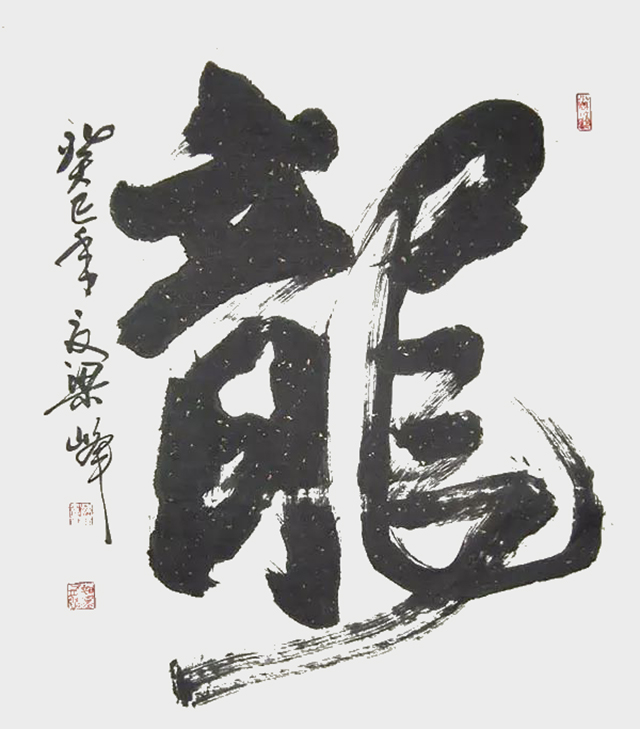 龍
癸巳年夏梁峰